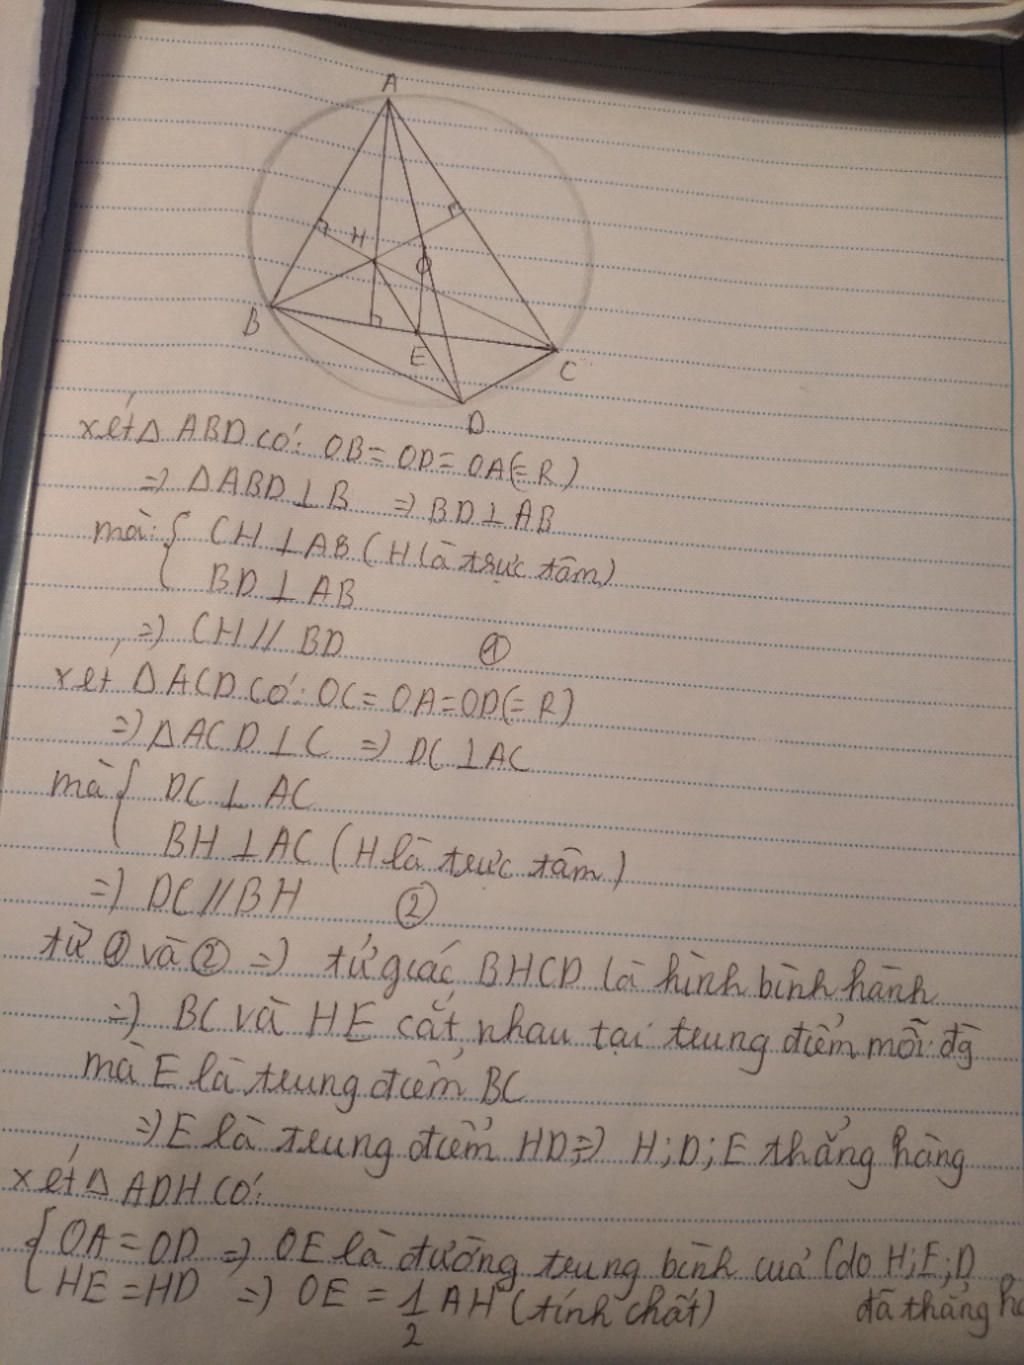 A
H
O
B
E
C
D
xét Δ ABD có: OB = OD = OA (= R)
=> Δ ABD ⊥ B => BD ⊥ AB
mà: { CH ⊥ AB (H là trực tâm)
BD ⊥ AB
=> CH // BD ①
xét Δ ACD có: OC = OA = OD (= R)
=> Δ ACD ⊥ C => DC ⊥ AC
mà { DC ⊥ AC
BH ⊥ AC (H là trực tâm)
=> DC // BH ②
từ ① và ② => tứ giác BHCD là hình bình hành
=> BC và HE cắt nhau tại trung điểm mỗi đg
mà E là trung điểm BC
=> E là trung điểm HD => H; D; E thẳng hàng
xét Δ ADH có:
{ OA = OD => OE là đường trung bình của (do H; E; D
HE = HD => OE = 1/2 AH (tính chất) đã thẳng hà